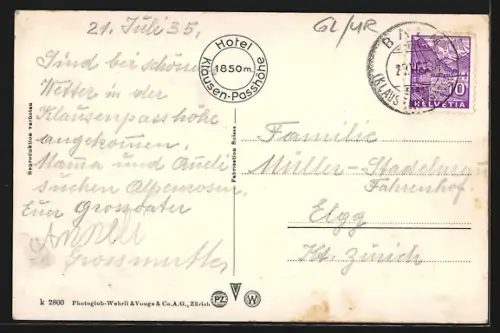 21. Juli 35.
GL/UR
Sind bei schönem
Wetter in der
Klausenpasshöhe
angekommen.
Mama und
suchen Alpenrosen.
Euer Grossvater
Grossmutter
Hotel
1850 m.
Klausen-Passhöhe
(KLAUSEN
10
HELVETIA
Familie
Müller-Stadelmann
Fahrenhof.
Elgg
Kt. Zürich
Reproduktion verboten
Fabrication Suisse
k 2800 Photoglob-Wehrli & Vouga & Co. A. G., Zürich
PZ
W